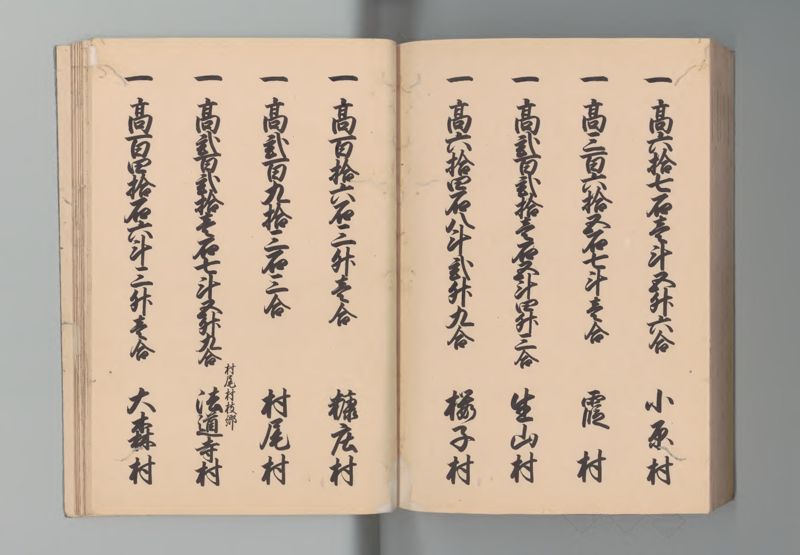 一 高六拾七石壱斗五升六合 小原村
一 高三百六拾五石七斗壱合 霞村
一 高弐百弐拾壱石五斗四升三合 生山村
一 高六拾四石八斗弐升九合 橡子村
一 高百拾六石二升壱合 糠庄村
一 高弐百九拾三石三合 村尾村
村尾村枝郷
一 高弐百弐拾壱石七斗五升九合 法道寺村
一 高百四拾石六斗三升壱合 大森村